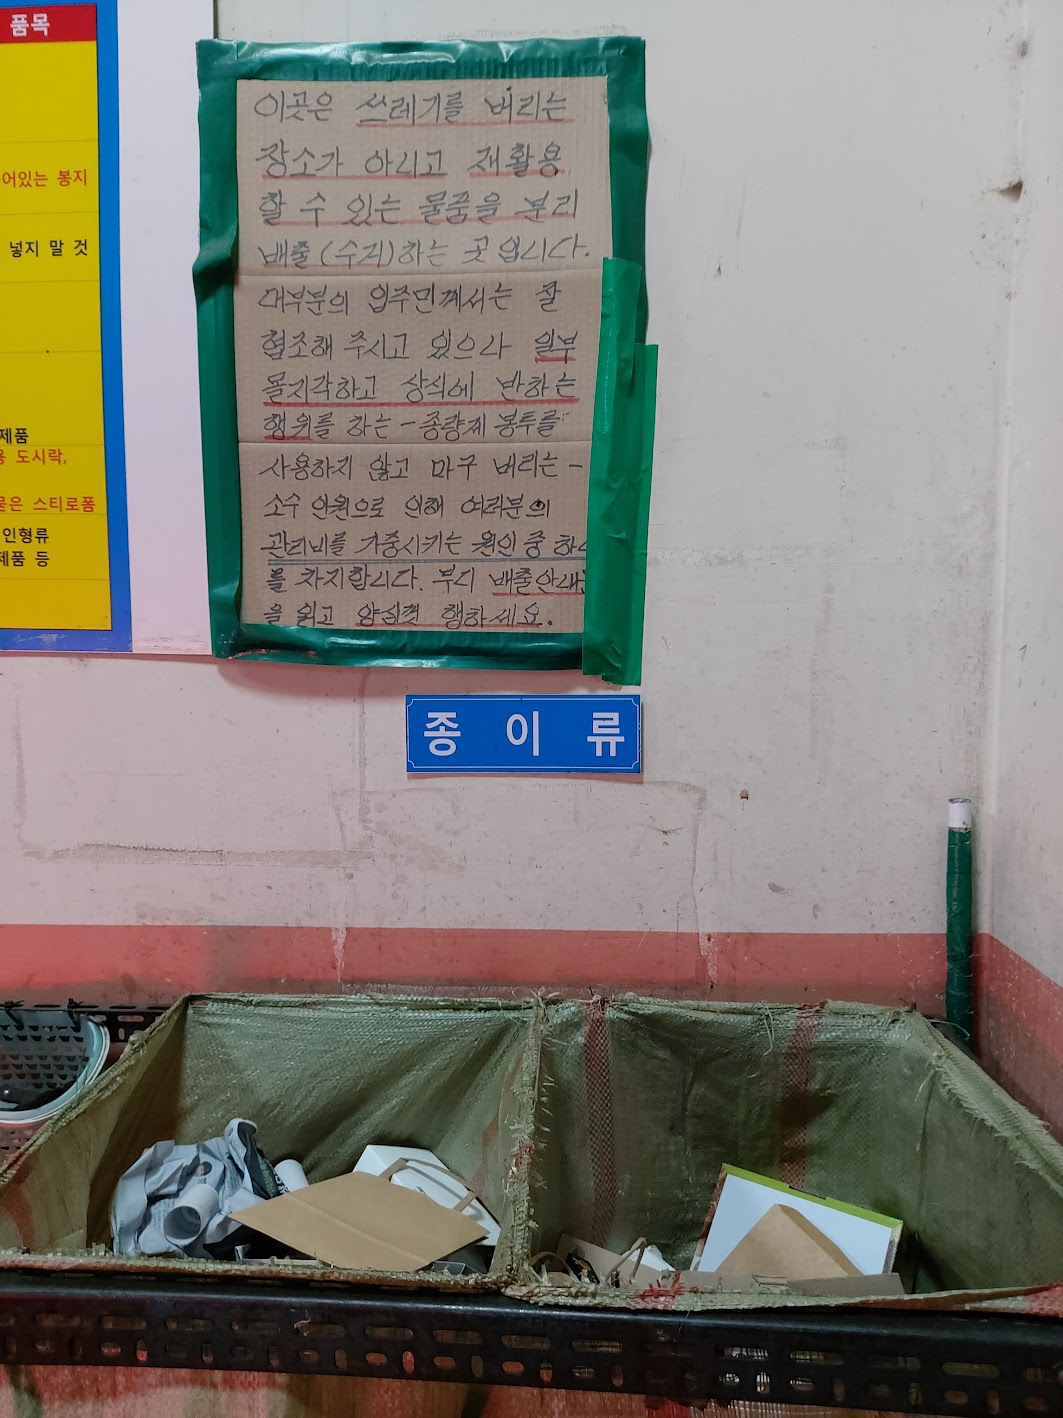 품목
어있는 봉지
넣지 말 것
제품
용 도시락,
묻은 스티로폼
인형류
제품 등
이곳은 쓰레기를 버리는
장소가 아니고 재활용
할 수 있는 물품을 분리
배출(수거)하는 곳입니다.
대부분의 입주민께서는 잘
협조해 주시고 있으나 일부
몰지각하고 상식에 반하는
행위를 하는 - 종량제 봉투를
사용하지 않고 마구 버리는 -
소수 인원으로 인해 여러분의
관리비를 가중시키는 원인 중 하나
를 차지합니다. 부디 배출안내문
을 읽고 양심껏 행하세요.
종 이 류